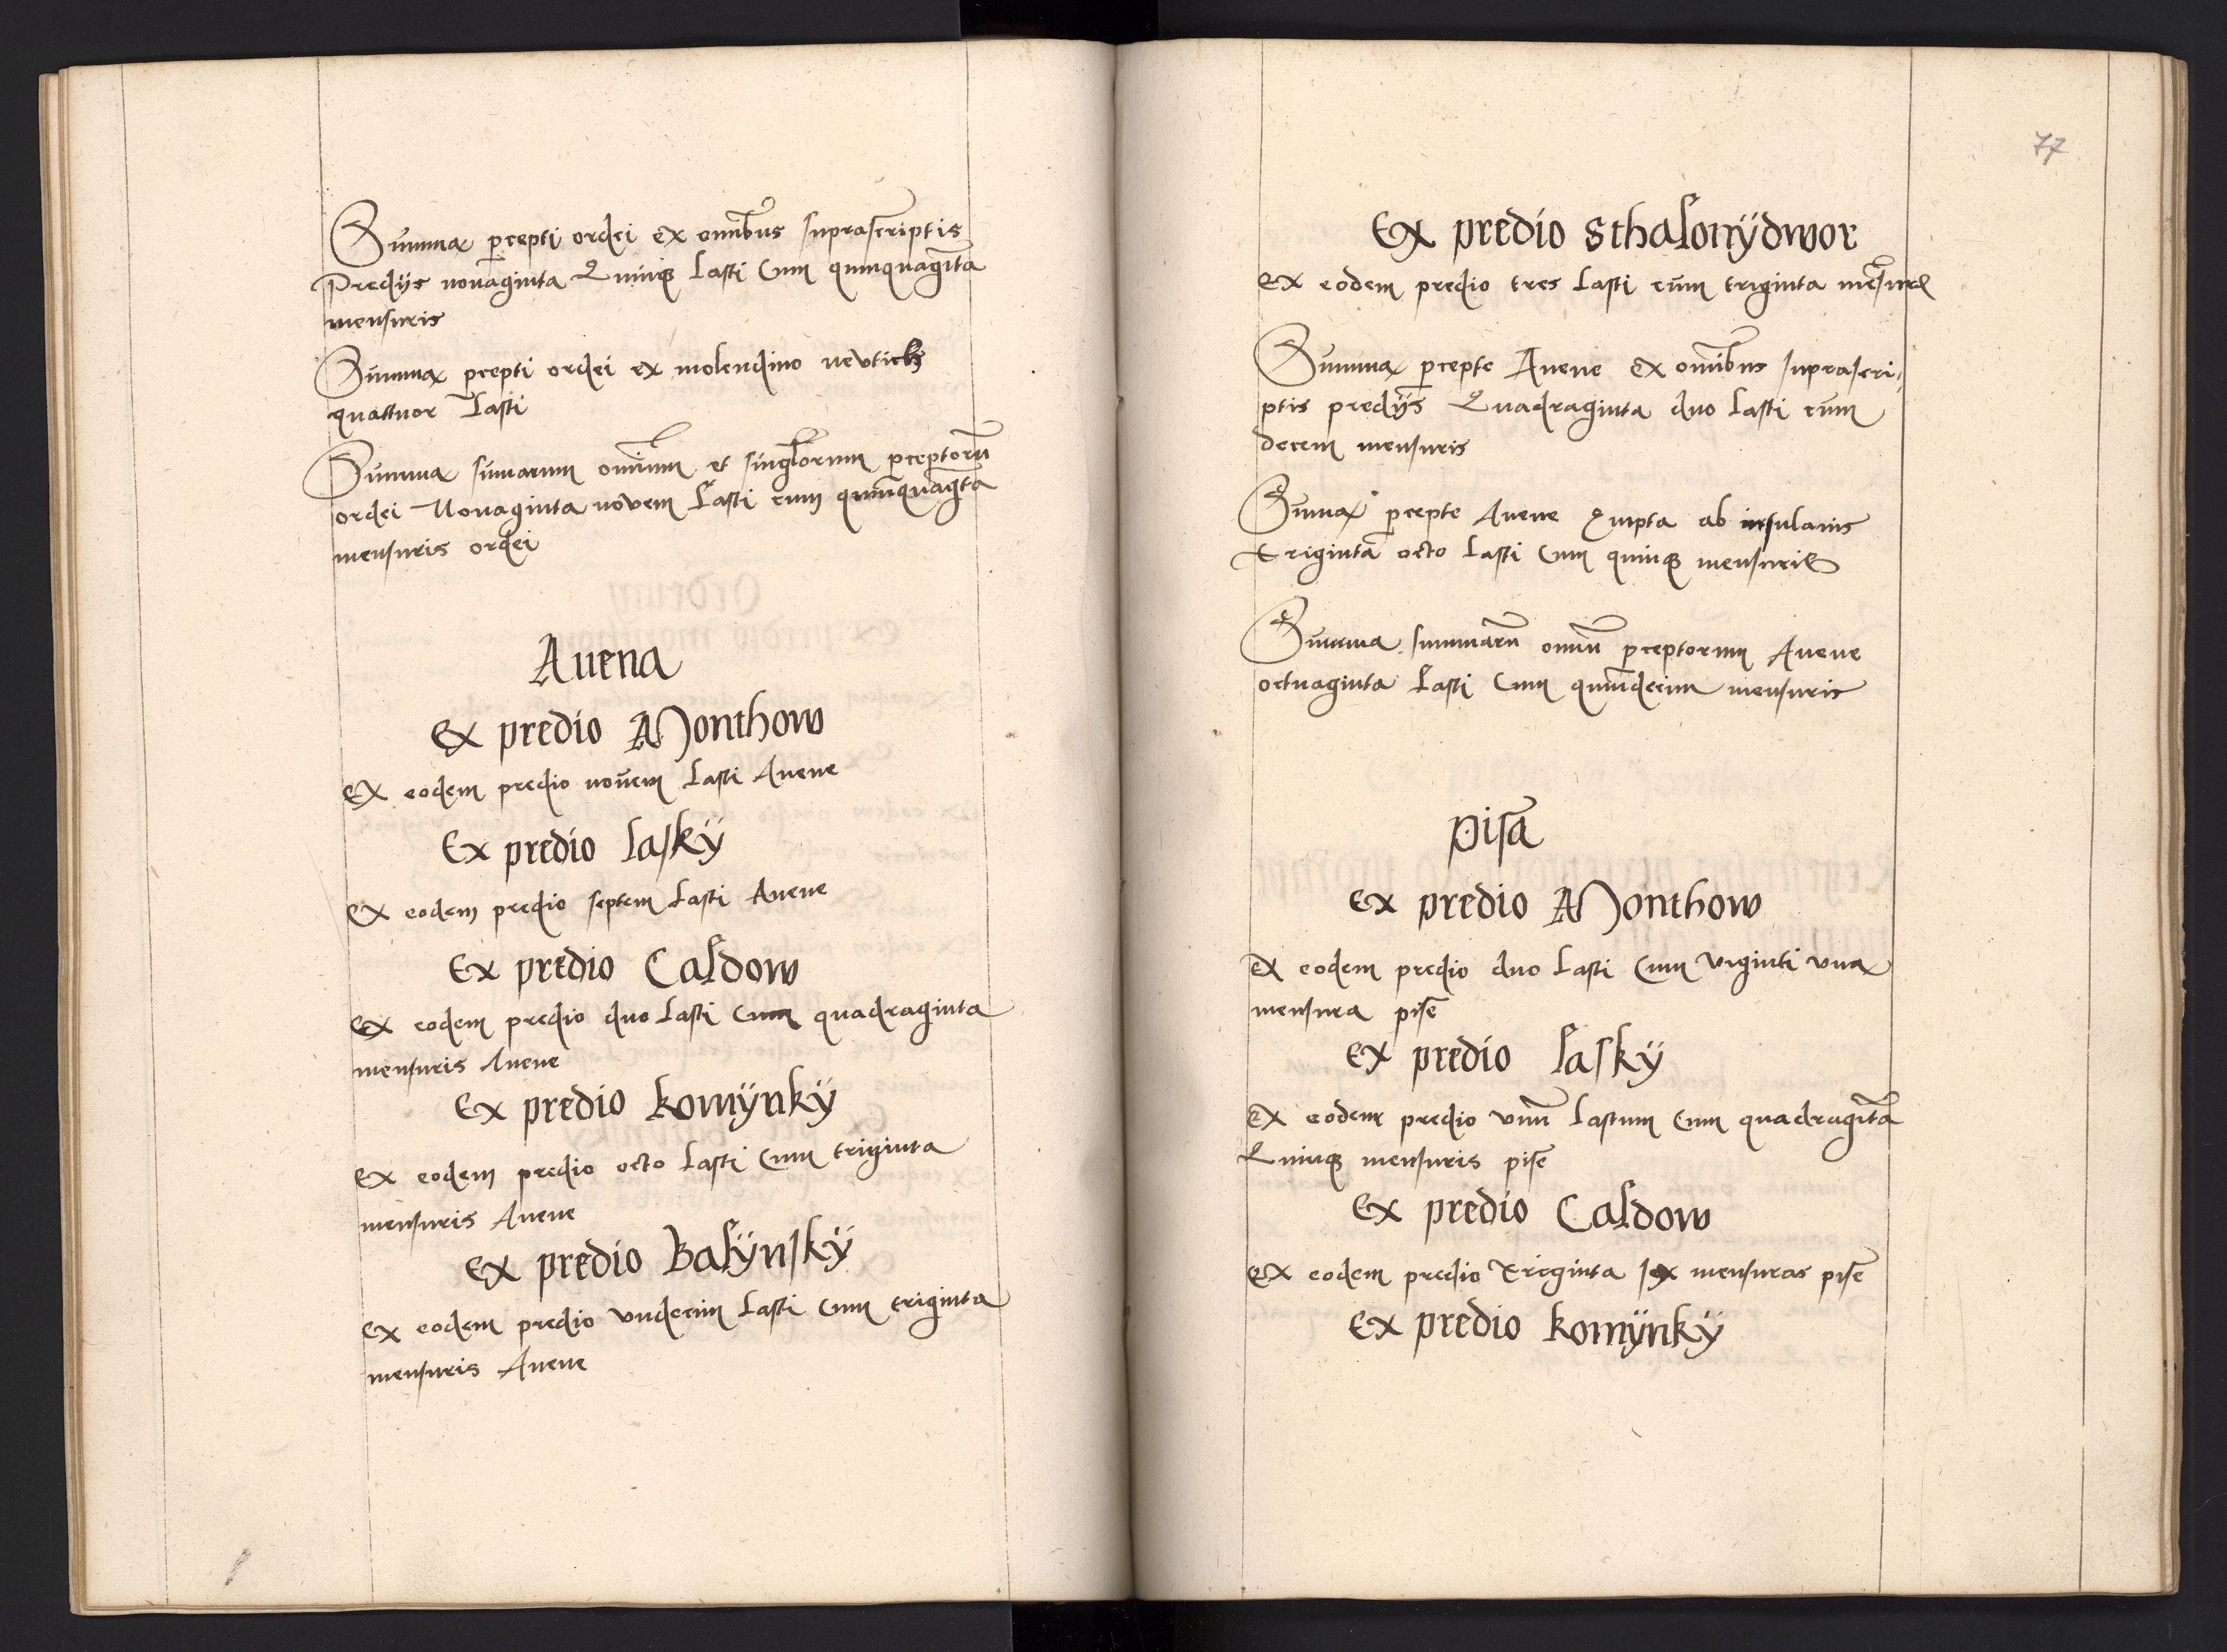 Summa pcepti ordei ex omibus suprascriptis
Predÿs nonaginta Quinqꝫ Lasti Cum quinquagita
mensuris
Summa pcepti ordei ex molendino
quattuor Lasti
Summa sumarum omium et singlorum pceptoru
ordei Nonaginta novem Lasti cum quinquagita
mensuris ordei
Auena
Ex predio Monthow
Ex eodem predio novem Lasti Auene
Ex predio Laskÿ
Ex eodem predio septem Lasti Auene
Ex predio Caldow
Ex eodem predio duo Lasti Cum quadraginta
mensuris Auene
Ex predio komÿnkÿ
Ex eodem predio octo Lasti Cum triginta
mensuris Auene
Ex predio Balÿnskÿ
Ex eodem predio vndecim Lasti Cum triginta
mensuris Auene
77
Ex predio Sthalonÿdwor
Ex eodem predio tres Lasti cum triginta
Summa pcepte Auene ex omibus suprascri,,
ptis predÿs Quadraginta duo Lasti cum
decem mensuris
Summa pcepte Auene ꝯmpta ab insulanis
triginta octo Lasti Cum quinqꝫ mensuris
Summa summaru omiu pceptorum Auene
octuaginta Lasti Cum quindecim mensuris
pisa
Ex predio Monthow
Ex eodem predio duo Lasti Cum viginti vna
mensura pise
Ex predio Laskÿ
Ex eodem predio vnu Lastum Cum quadragita
Quinqꝫ mensuris pise
Ex predio Caldow
Ex eodem predio Triginta sex mensuras pise
Ex predio komÿnkÿ